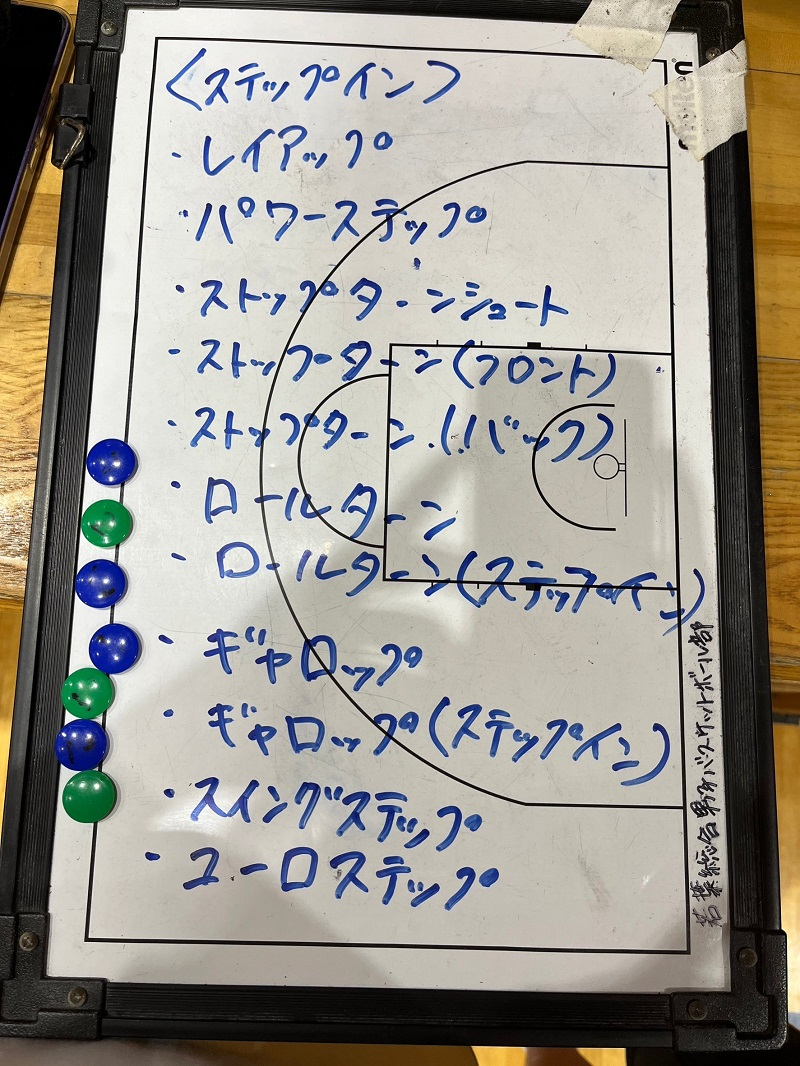 〈ステップイン〉
・レイアップ
・パワーステップ
・ストップターンシュート
・ストップターン(フロント)
・ストップターン(バック)
・ロールターン
・ロールターン(ステップイン)
・ギャロップ
・ギャロップ(ステップイン)
・スイングステップ
・ユーロステップ
molten
若葉総合男子バスケットボール部